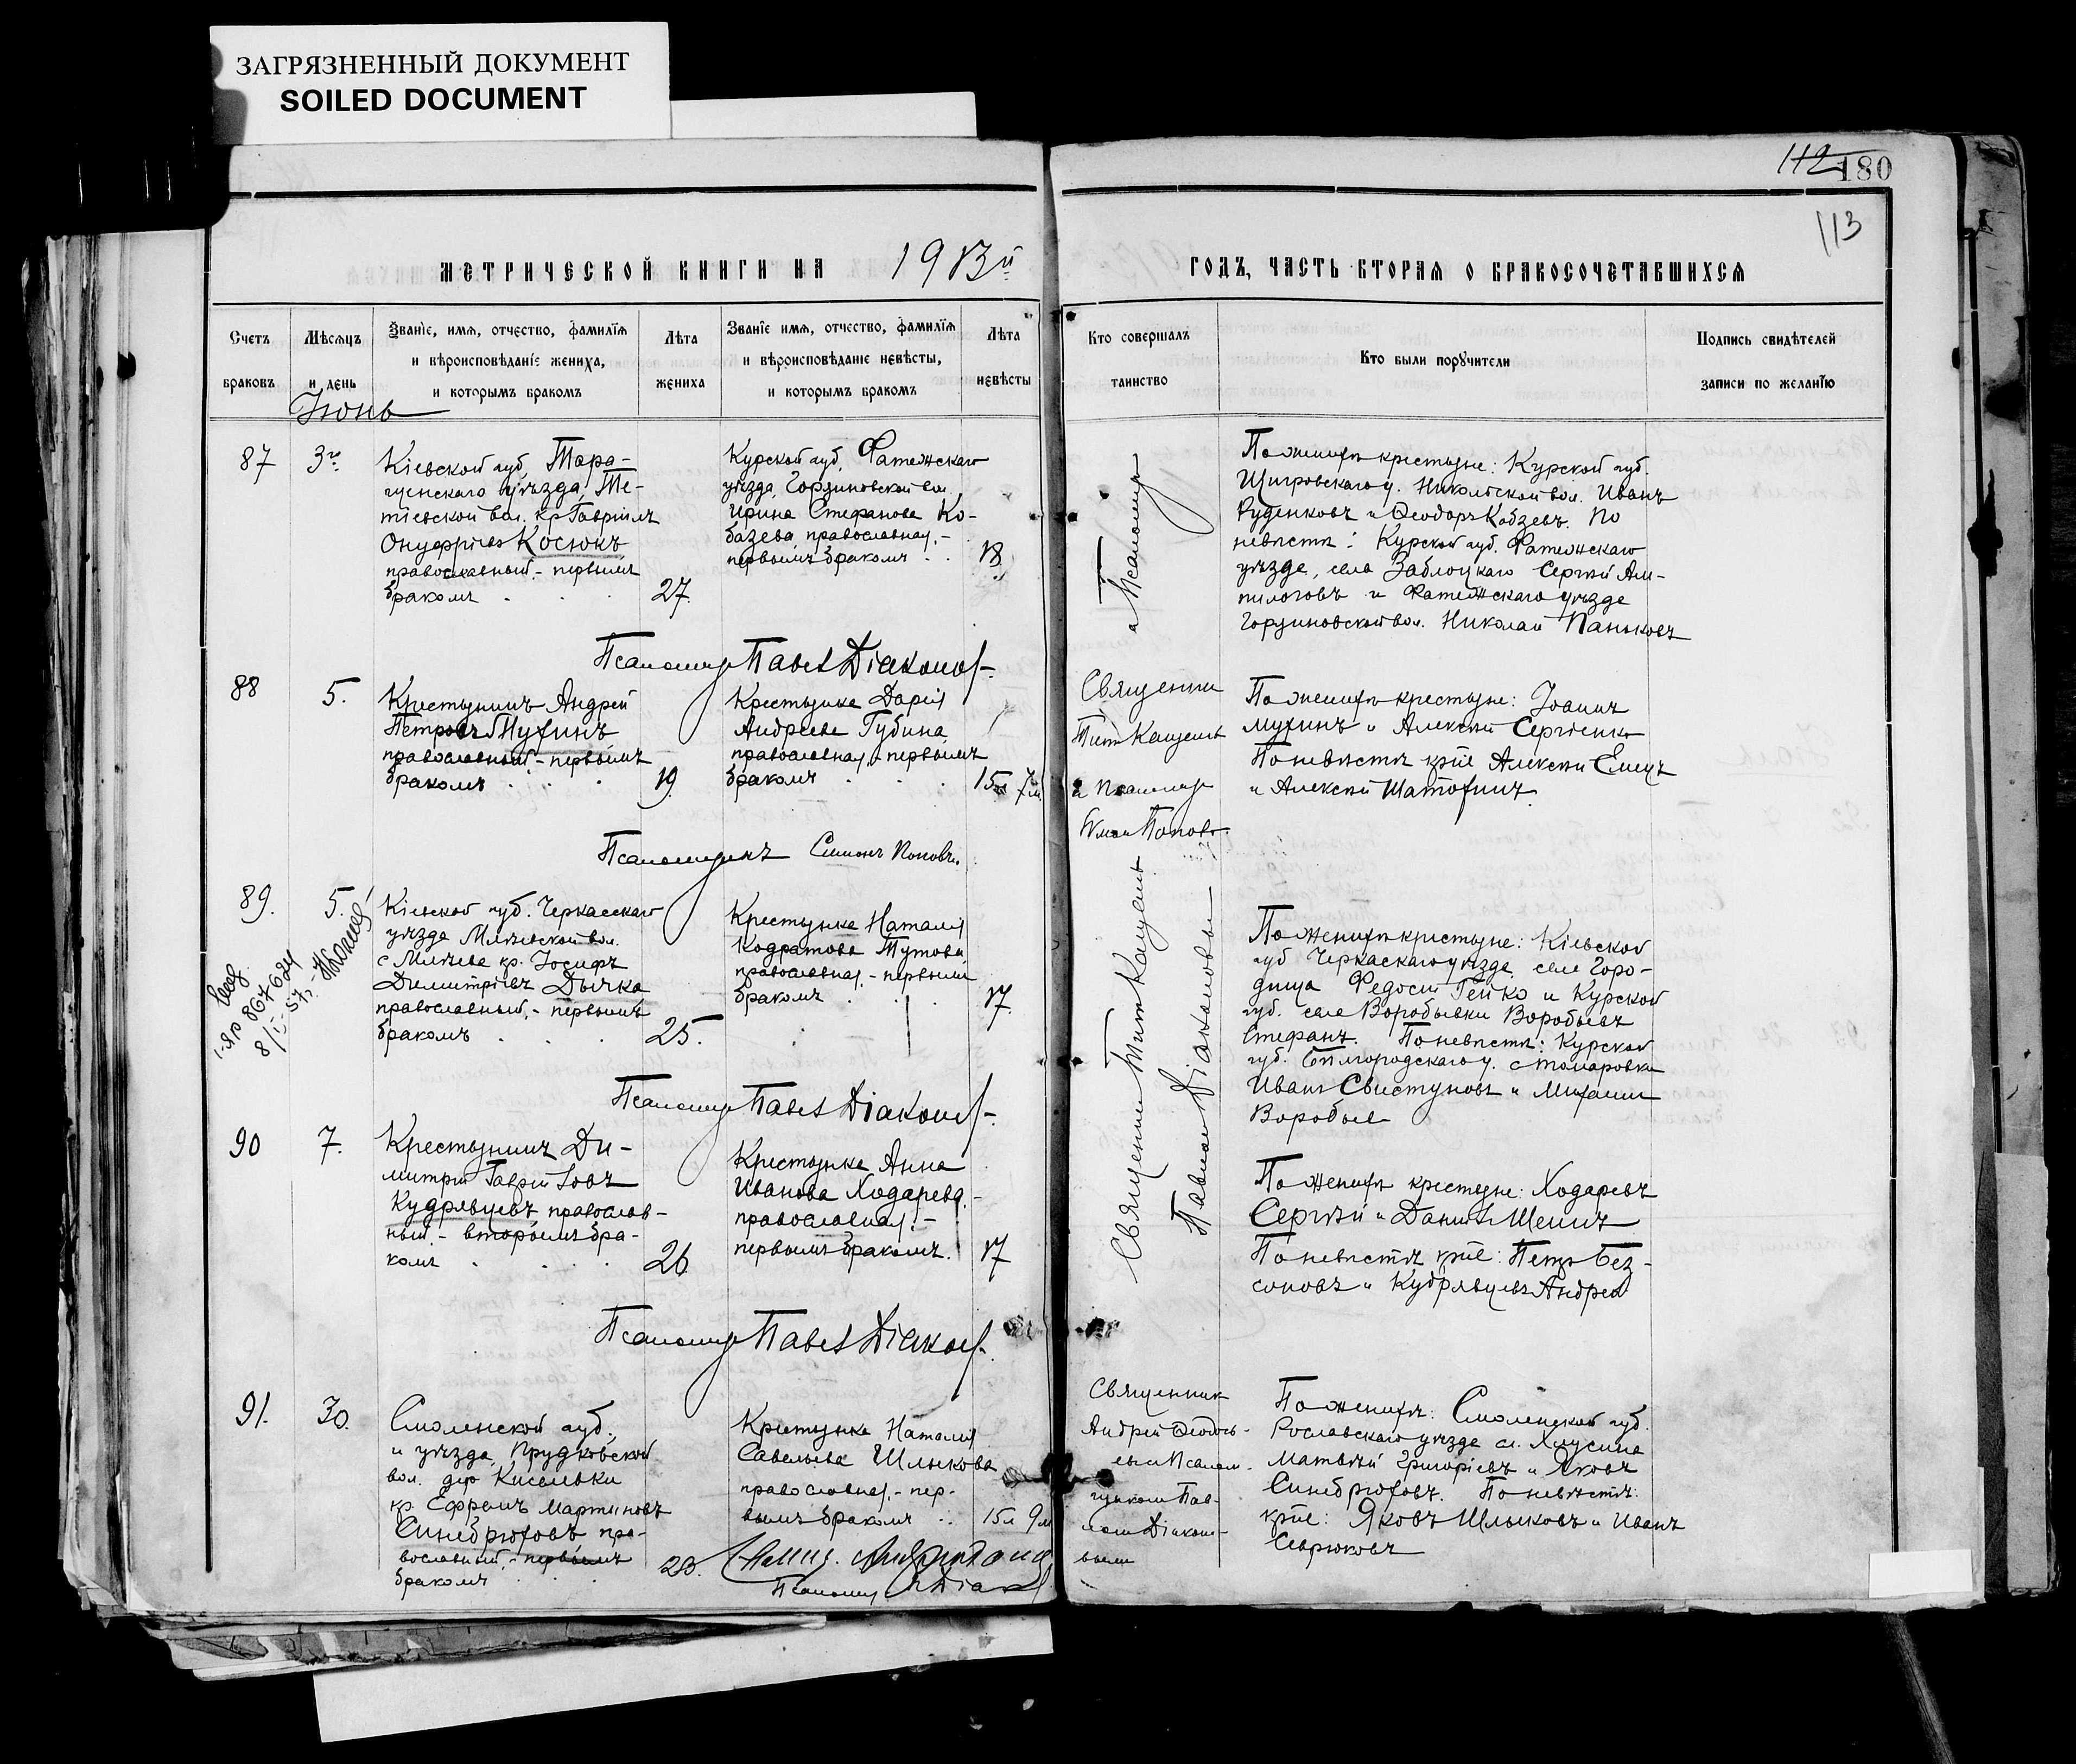 ЗАГРЯЗНЕННЫЙ ДОКУМЕНТ
SOILED DOCUMENT
112
180
113
МЕТРИЧЕСКОЙ КНИГИ НА 1913й ГОДЪ, ЧАСТЬ ВТОРАЯ О БРАКОСОЧЕТАВШИХСЯ
Счетъ
браковъ
Мѣсяцъ
и день
Званіе, имя, отчество, фамилія
и вѣроисповѣданіе жениха,
и которымъ бракомъ
Лѣта
жениха
Званіе имя, отчество, фамилія
и вѣроисповѣданіе невѣсты,
и которымъ бракомъ
Лѣта
невѣсты
Кто совершалъ
таинство
Кто были поручители
Подпись свидѣтелей
записи по желанію
Іюнь
87
3го
Кіевской губ. Тара-
щенскаго уѣзда, Те-
тіевской вол. кр. Гавріилъ
Онуфріевъ Косюкъ
православный, - первымъ
бракомъ
27.
Курской губ. Фатежскаго
уѣзда, Горяиновской вол.
Ирина Стефанова Ко-
базева православная, -
первымъ бракомъ
18
и Псаломщ
По женихѣ крестьяне: Курской губ.
Щигровскаго у. Никольской вол. Иванъ
Руденковъ и Ѳеодоръ Кобзевъ. По
невѣстѣ: Курской губ. Фатежскаго
уѣзда, села Заблоцкаго Сергѣй Ам-
пилоговъ и Фатежскаго уѣзда
Горяиновской вол. Николай Паньковъ
Псаломщ Павел Діаконов
88
5.
Крестьянинъ Андрей
Петровъ Мухинъ
православный - первымъ
бракомъ
19.
Крестьянка Дарія
Андреева Губина
православная, - первымъ
бракомъ
15л 7м
Священник
Тит Кащеев
и псаломщ
Сим Попов
По женихѣ крестьяне: Іоаннъ
Мухинъ и Алексѣй Сергіенко
По невѣстѣ кр-не Алексѣй Емецъ
и Алексѣй Шатохинъ.
Псаломщикъ Симонъ Поповъ.
89.
5.
8/I-57г.
Кіевской губ. Черкасскаго
уѣзда Мліевской вол.
с Мліева кр. Іосифъ
Димитріевъ Дычка
православный, - первымъ
бракомъ
25.
Крестьянка Наталія
Кодратова Тутова
православная, - первымъ
бракомъ
17.
Священник Тит Кащеев
Павел Діаконовъ
По женихѣ крестьяне: Кіевской
губ Черкасскаго уѣзда, села Горо-
дища Федосій Гейко и Курской
губ. села Воробьевки Воробьевъ
Стефанъ. По невѣстѣ: Курской
губ. Бѣлгородскаго у. с Томаровки
Иванъ Свистуновъ и Михаилъ
Воробьев
Псаломщ Павел Діаконов
90
7.
Крестьянинъ Ди-
митрій Гавріиловъ
Кудрявцевъ православ-
ный, - вторымъ бра-
комъ
26
Крестьянка Анна
Иванова Ходарева
православная, -
первымъ бракомъ.
17
По женихѣ крестьяне: Ходаревъ
Сергѣй и Даніилъ Шеинъ
По невѣстѣ кр-не: Петръ Без-
соновъ и Кудрявцевъ Андрей
Псаломщ Павел Діаконов
91.
30.
Смоленской губ.
и уѣзда, Прудковской
вол. дер Киселевки
кр. Ефремъ Мартиновъ
Синебрюховъ пра-
вославный, - первымъ
бракомъ
23.
Крестьянка Наталія
Савельева Шлыкова
православная, - пер-
вымъ бракомъ
15л 9м
Псаломщ
Священник
Андрей Ѳеодось-
ев и Псалом-
щиком Пав-
лом Діаконо-
вым
По женихѣ: Смоленской губ.
Рославскаго уѣзда сл. Хлусина
Матвѣй Григоріевъ и Яковъ
Синебрюховъ. По невѣстѣ:
кр-не: Яковъ Шлыковъ и Иванъ
Севрюковъ